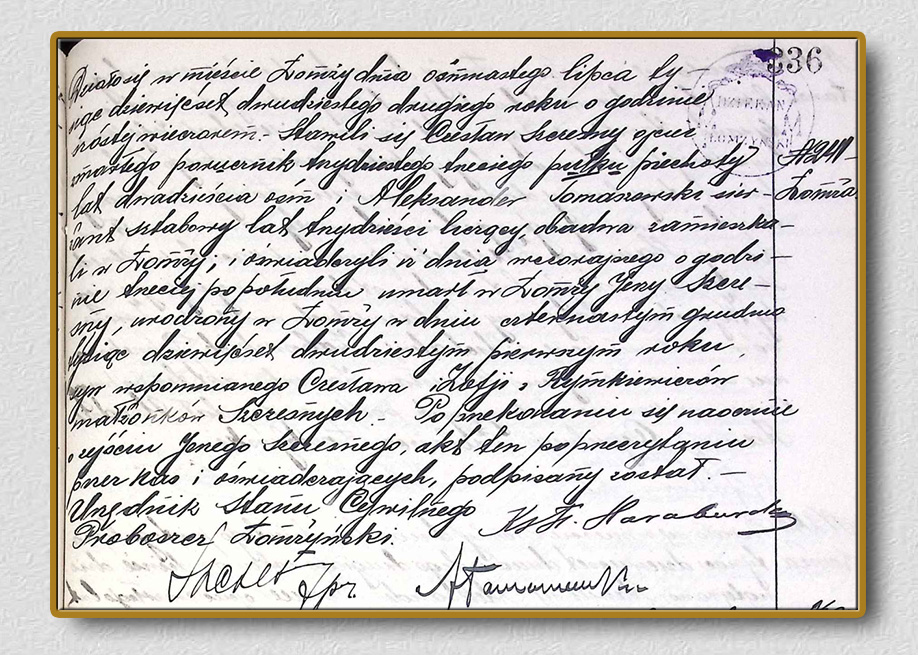 336
Działo się w mieście Łomży dnia ośmnastego lipca ty-
siąc dziewięćset dwudziestego drugiego roku o godzinie
szóstej wieczorem. - Stawili się Czesław Szczesny ojciec
zmarłego porucznik trzydziestego trzeciego pułku piechoty
lat dwadzieścia ośm i Aleksander Tomaszewski sier-
żant sztabowy lat trzydzieści liczący, obadwa zamieszka-
li w Łomży; i oświadczyli iż dnia wczorajszego o godzi-
nie trzeciej po południu umarł w Łomży Jerzy Szcze-
sny, urodzony w Łomży w dniu czternastym grudnia
tysiąc dziewięćset dwudziestym pierwszym roku,
syn wspomnianego Czesława i Zofji z Rymkiewiczów
małżonków Szczesnych. - Po przekonaniu się naocznie
o zejściu Jerzego Szczesnego, akt ten po przeczytaniu
przez Nas i oświadczających, podpisany został. -
Urzędnik Stanu Cywilnego
Proboszcz Łomżyński.
Łomża.
DZIEKAN
ŁOMŻYŃSKI